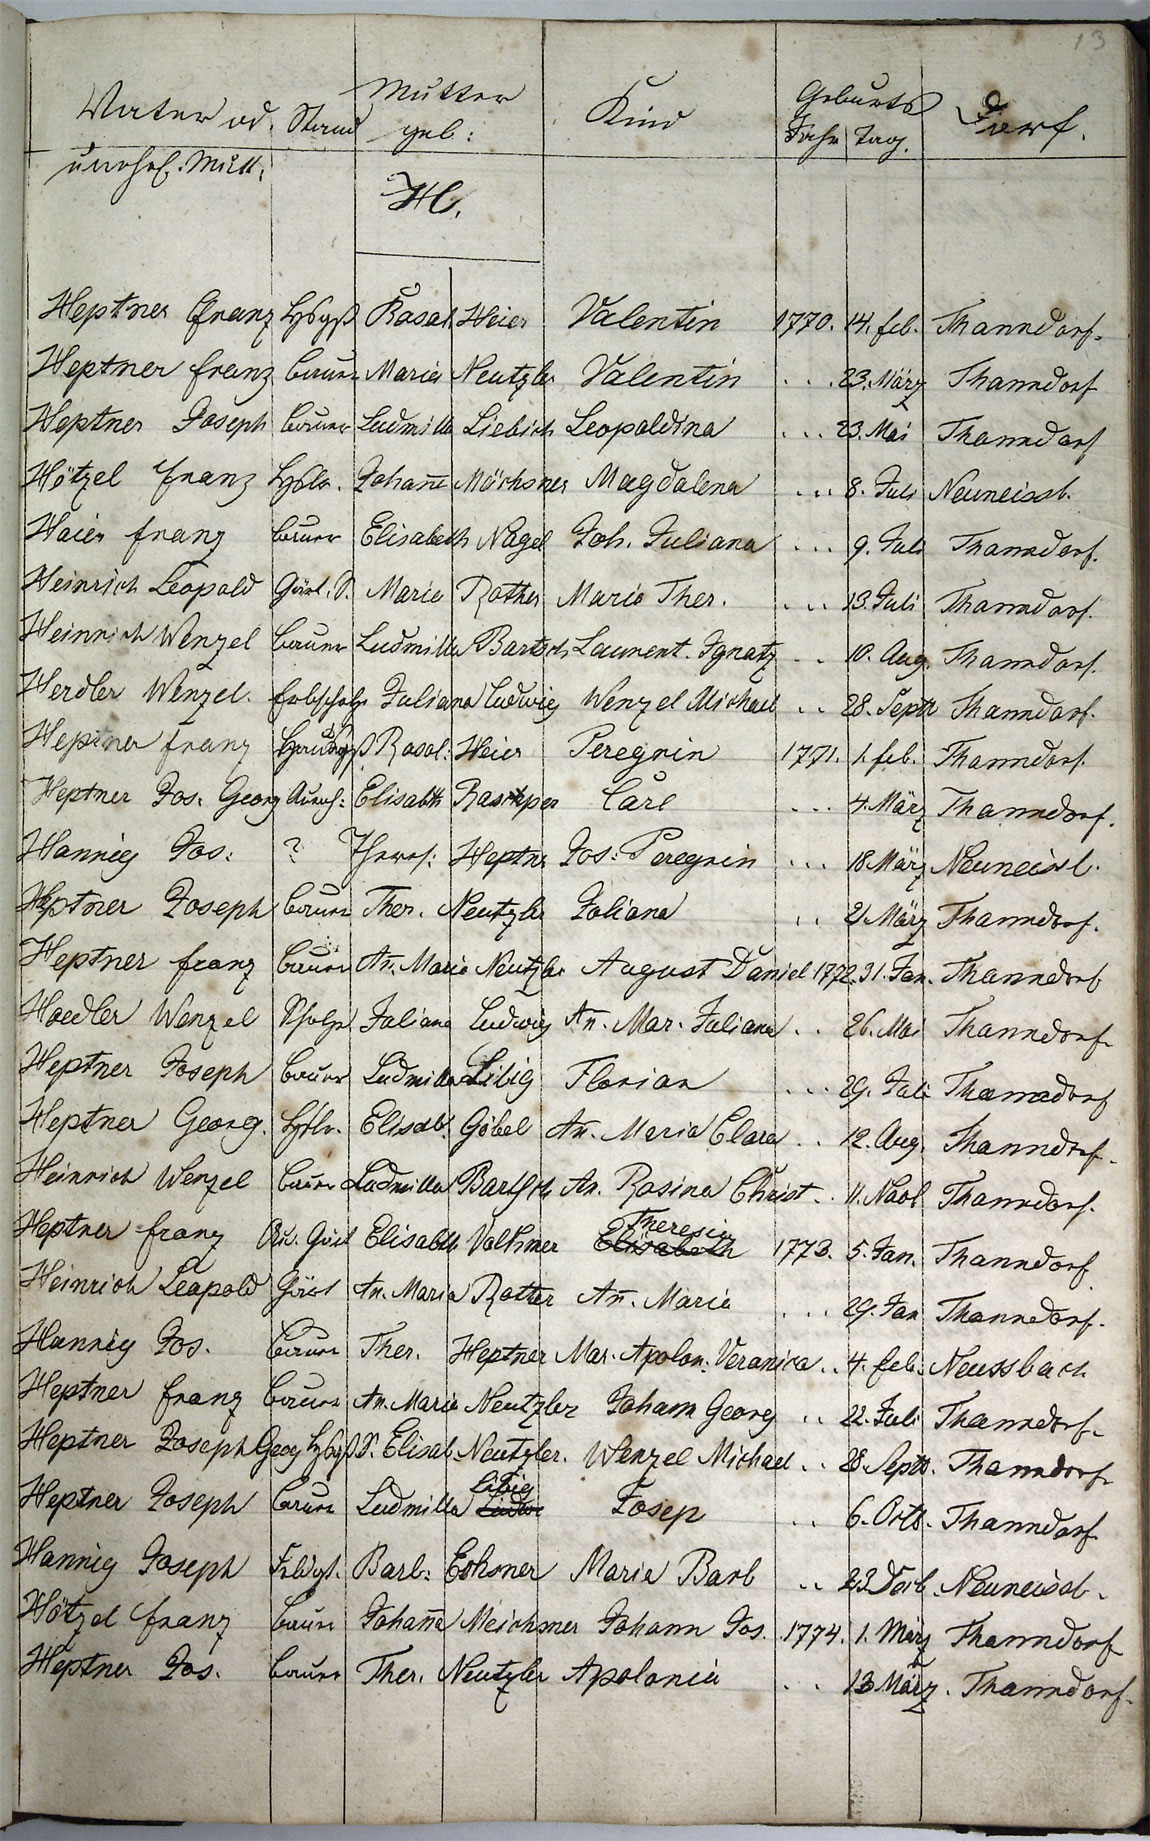 13
Vater od. Stand Mutter geb: Kind Geburts Jahr Tag. Dorf.
unehel. Mutt.
H.
Heptner Franz Hsbgß Rosal. Heier Valentin 1770. 14. feb. Thanndorf.
Heptner franz bauer Maria Neutzler Valentin . . . 23. März Thanndorf
Heptner Joseph bauer Ludmilla Liebich Leopoldina . . . 23. Mai Thanndorf
Hötzel franz Hslr. Johana Märhsner Magdalena . . . 8. Juli Neuneissb.
Haier franz bauer Elisabeth Nagel Joh. Juliana . . . 9. Juli Thanndorf.
Heinrich Leopold Gärt. S. Maria Rother Maria Ther. . . . 13. Juli Thanndorf.
Heinrich Wenzel bauer Ludmilla Bartsch Laurent. Ignatz . . 10. Aug. Thanndorf.
Herdler Wenzel. Erbscholz Juliana Ludwig Wenzel Michael . . 28. Septb Thanndorf.
Heptner franz Rosal: Heier Peregrin 1771. 1. feb. Thanndorf.
Heptner Jos. Georg Elisabth Carl . . . 4. März Thanndorf.
Hannig Jos: ? Theres: Heptner Jos: Peregrin . . . 18 März Neuneissb.
Heptner Joseph bauer Ther. Neutzler Juliana . . 21. März Thanndorf.
Heptner franz bauer An. Maria Neutzler August Daniel 1772. 31. Jan. Thanndorf
Hoedler Wenzel Scholz Juliana Ludwig An. Mar. Juliana . . 26. Mai Thanndorf.
Heptner Joseph bauer Ludmilla Libig Florian . . . 29. Juli Thanndorf
Heptner Georg. Hslr. Elisab. Göbel An. Maria Clara . . 12. Aug. Thanndorf.
Heinrich Wenzel bauer Ludmilla Bartsch An. Rosina Christ . . 11. Novb. Thanndorf.
Theresia
Heptner franz Au. Gärt Elisabth Volkmer Elisabeth 1773. 5. Jan. Thanndorf
Heinrich Leopold Gärt An. Maria Rotter An. Maria . . . 29. Jan Thanndorf.
Hannig Jos. bauer Ther. Heptner Mar. Apolon. Veronica . . 4. feb. Neussbach
Heptner franz bauer An. Maria Neutzler Johann Georg . . 22. Juli Thanndorf.
Heptner Joseph Georg Hsbgß. S. Elisab. Neutzler. Wenzel Michael . . 28. Septb. Thanndorf
Libig
Heptner Joseph bauer Ludmilla Josep . . 6. Octb. Thanndorf
Hannig Joseph Barb: Exner Maria Barb . . 23 Decb. Neuneissb.
Hötzel franz bauer Johana Meichsner Johann Jos. 1774. 1. März Thanndorf
Heptner Jos. bauer Ther. Neutzler Apolonia . . . 13 März. Thanndorf.